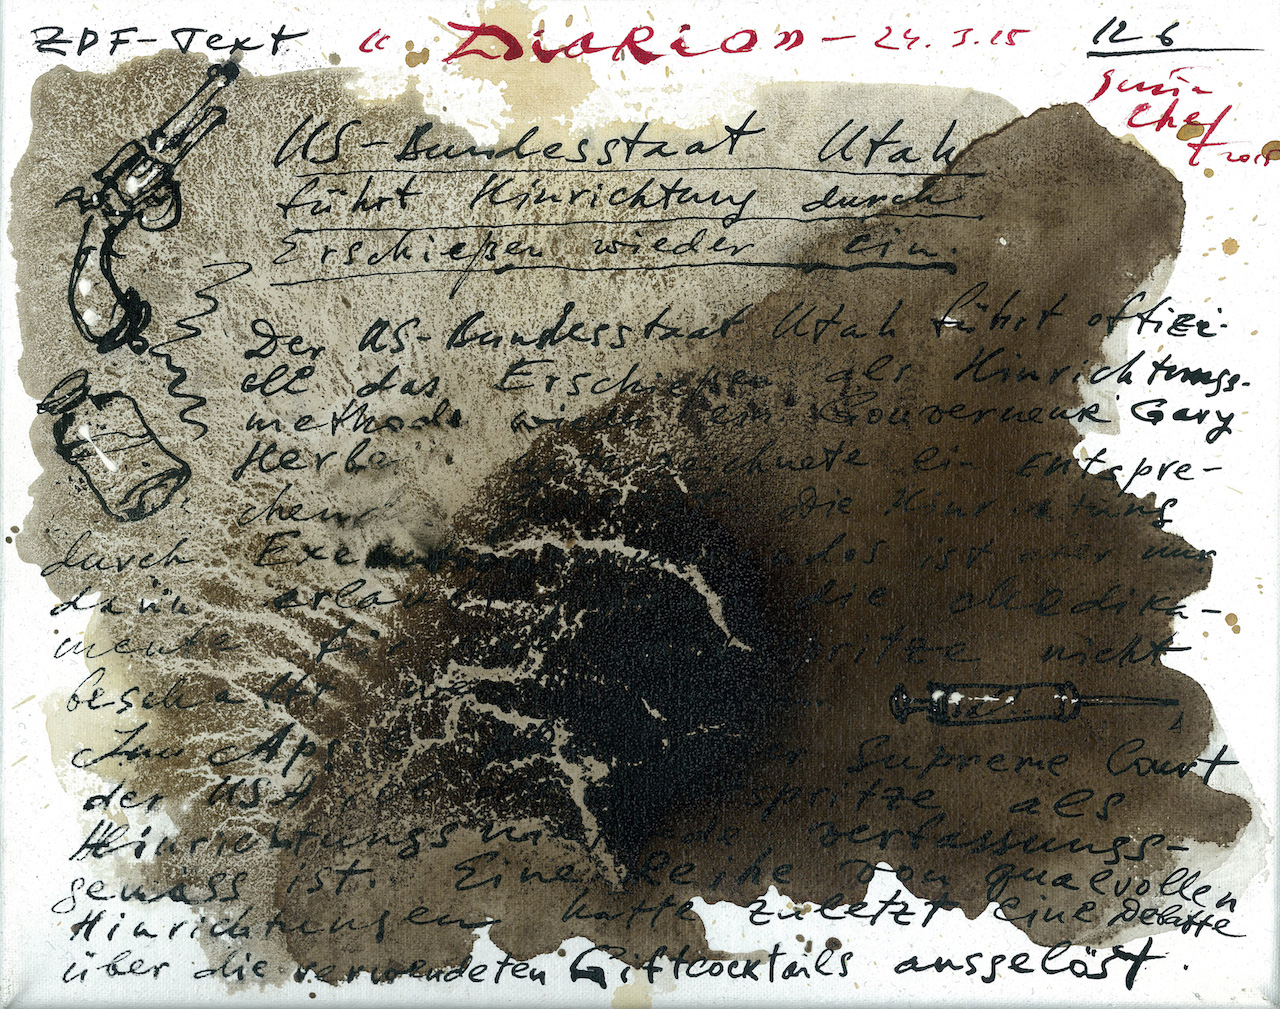 ZDF-Text « Diario» - 24.3.15 126
Chef
2015
US-Bundesstaat Utah
führt Hinrichtung durch
Erschießen wieder ein.
Der US-Bundesstaat Utah führt offizi-
ell das Erschießen als Hinrichtungs-
methode wieder ein. Gouverneur Gary
Herbe zeichnete ein Entspre-
chen Die Hinrichtung
durch Exe dos ist aber nur
dann erlaubt die Medika-
mente für pritze nicht
beschafft
Supreme Court
der USA spritze als
Hinrichtungsmethode verfassungs-
gemäss ist. Eine Reihe von qualvollen
Hinrichtungen hatte zuletzt eine Debatte
über die verwendeten Giftcocktails ausgelöst.